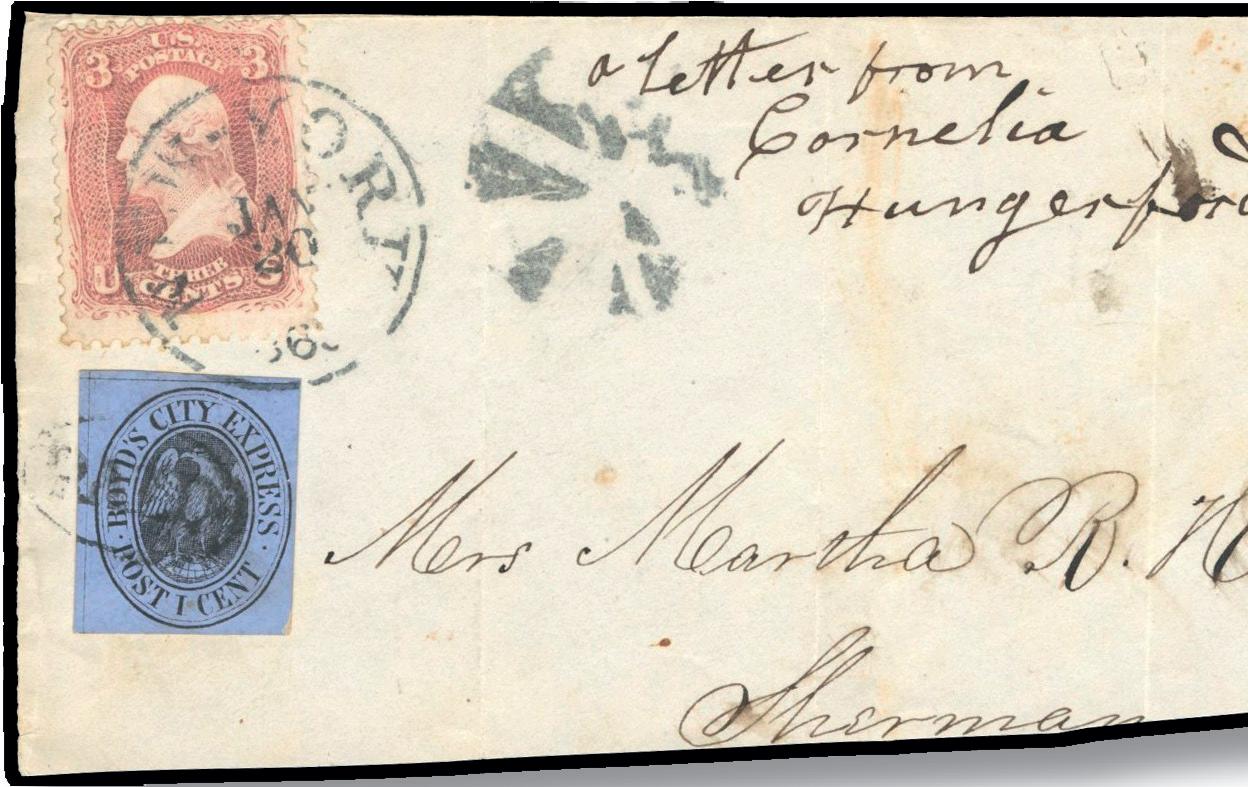 U.S.
POSTAGE
3 3
U S
THREE
CENTS
NEW-YORK
JAN
20
a letter from
Cornelia
Hungerford
BOYD'S CITY EXPRESS
POST 1 CENT
Mrs Martha R. H
Sherman